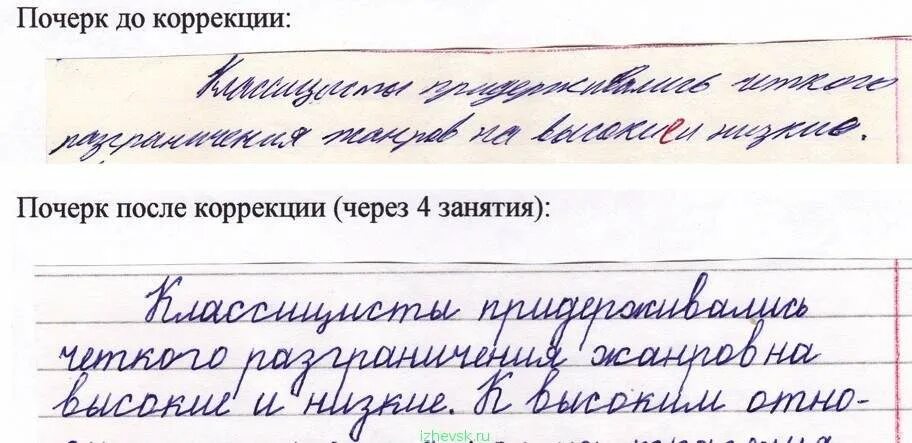 Почерк до коррекции:
Классицисты придерживались четкого
разграничения жанров на высокие и низкие.
Почерк после коррекции (через 4 занятия):
Классицисты придерживались
четкого разграничения жанров на
высокие и низкие. К высоким отно-
izhevsk.ru